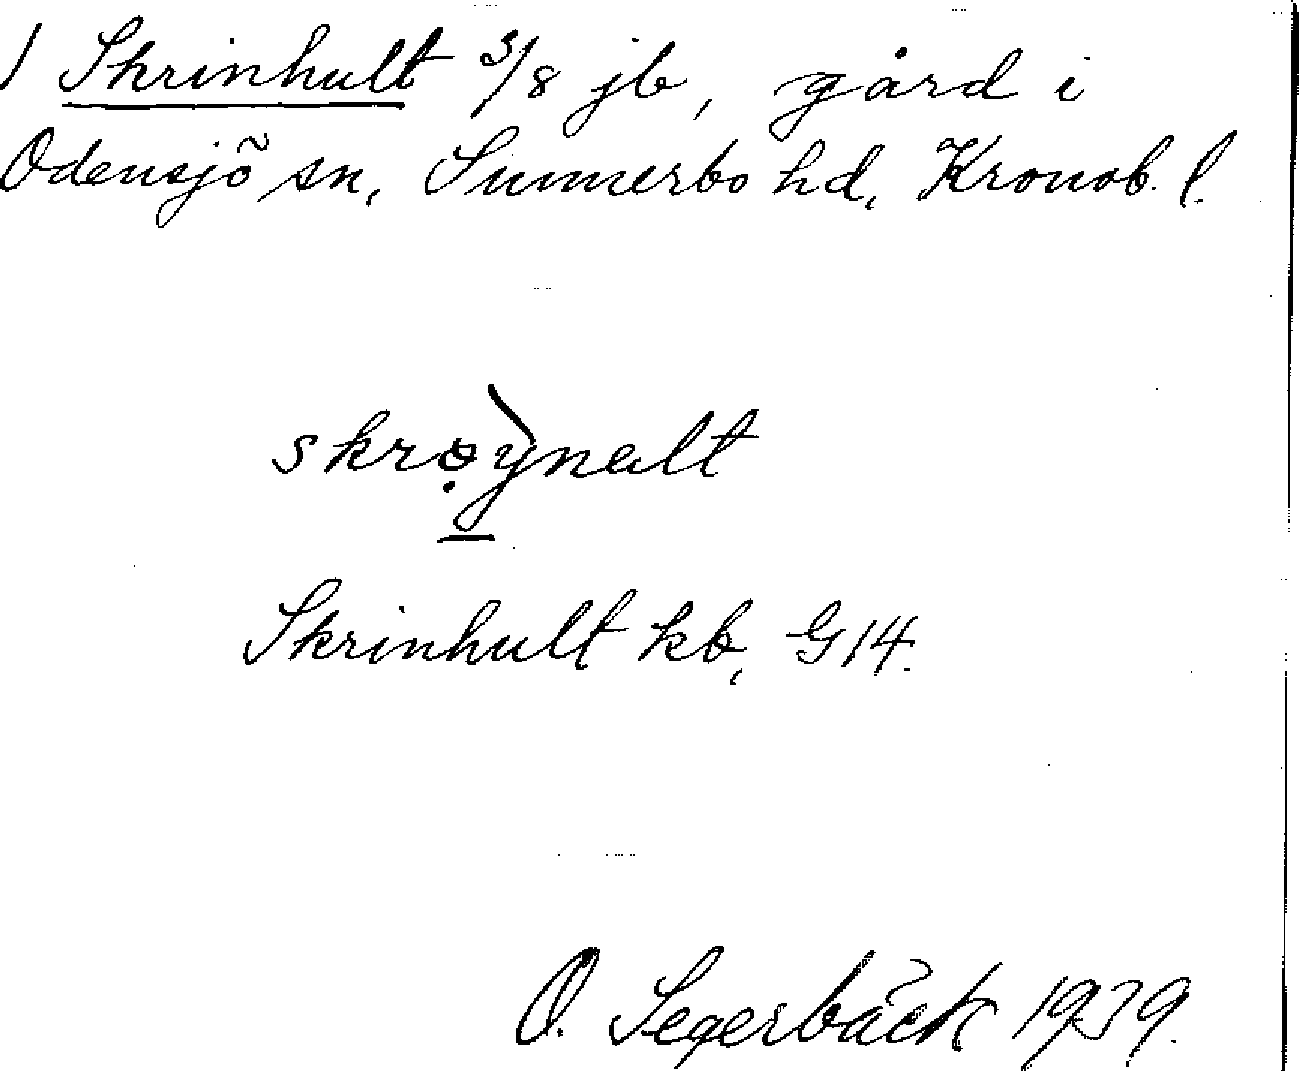 / Skrinhult 3/8 jb, gård i
Odensjö sn, Sunnerbo hd, Kronob. l.
skrǫ̈̀ynalt
Skrinhult kb, G14.
O. Segerbäck 1939.